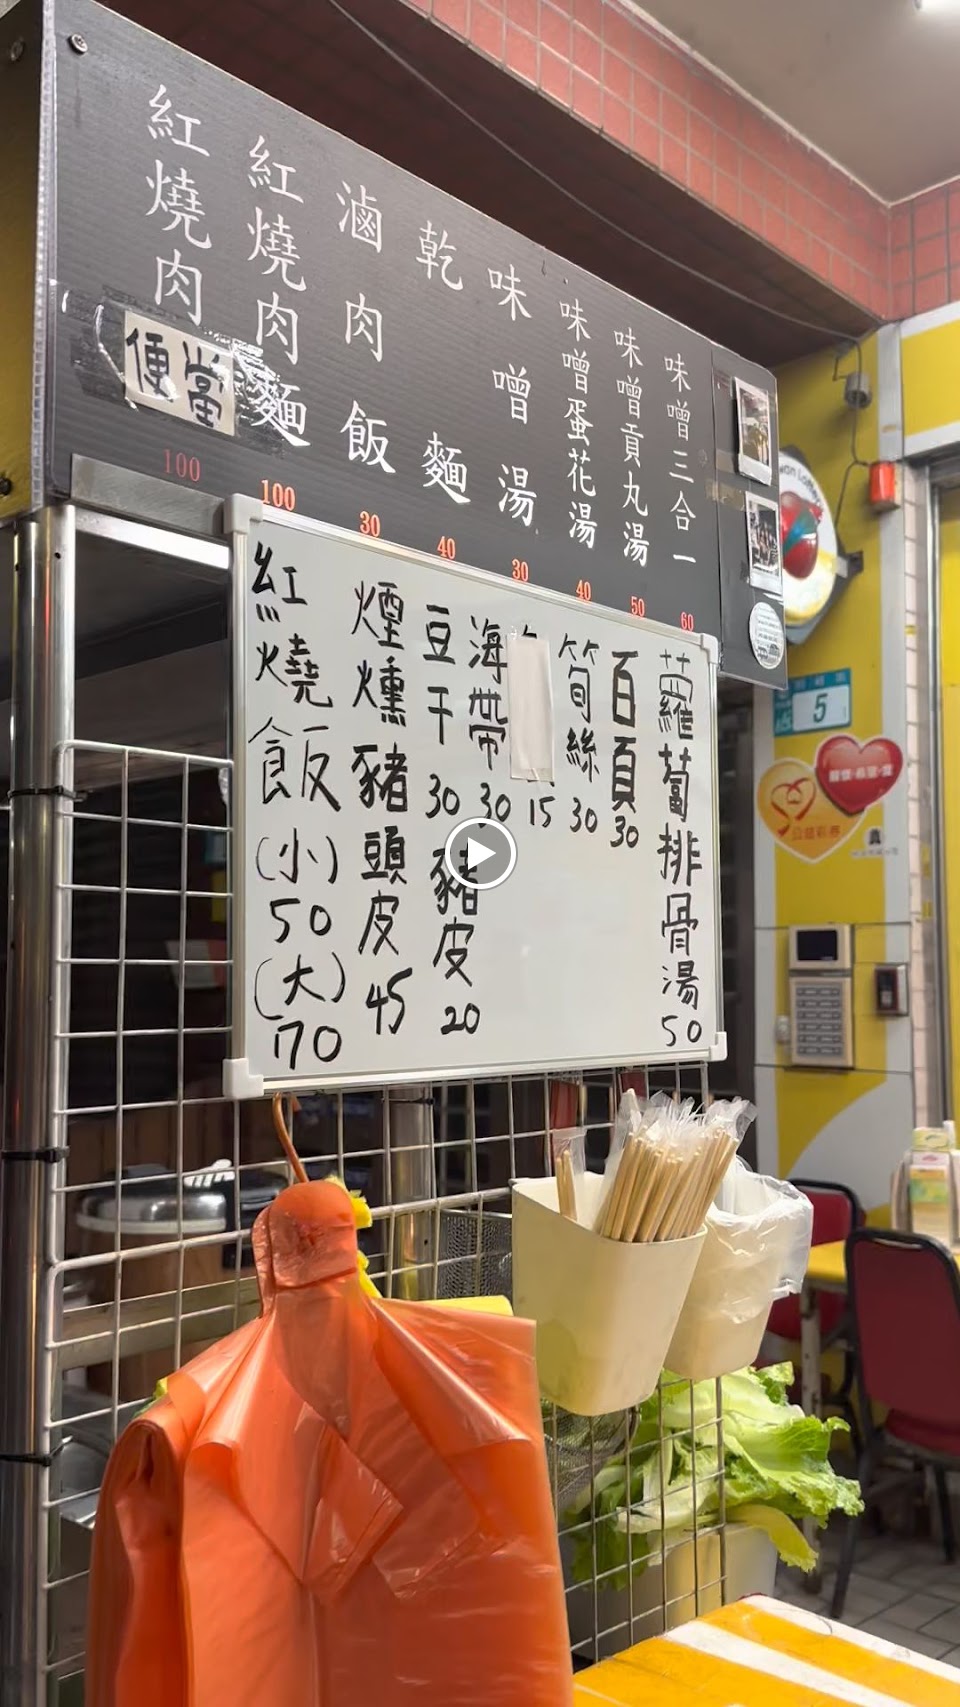 紅燒肉便當 100
紅燒肉麵 100
滷肉飯 30
乾麵 40
味噌湯 30
味噌蛋花湯 40
味噌貢丸湯 50
味噌三合一 60
紅燒飯(小)50(大)70
煙燻豬頭皮45
豆干30
豬皮20
海帶30
15
筍絲30
百頁30
蘿蔔排骨湯50
5
公益彩券